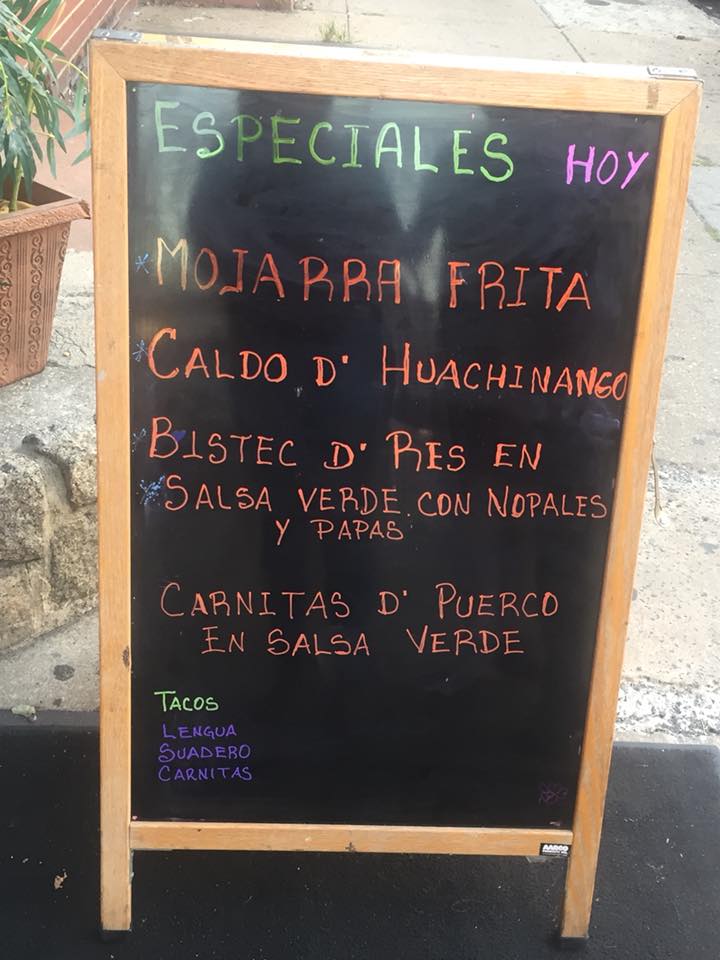 ESPECIALES HOY
* MOJARRA FRITA
* CALDO D' HUACHINANGO
* BISTEC D' RES EN
* SALSA VERDE CON NOPALES
Y PAPAS
CARNITAS D' PUERCO
EN SALSA VERDE
TACOS
LENGUA
SUADERO
CARNITAS
AARCO